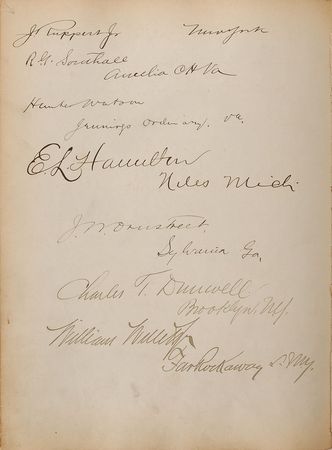 J. Ruppert Jr New York
R. G. Southall
Amelia CH Va
Hunter Watson
Jennings Ordinary, Va.
E. L. Hamilton
Niles Mich.
J. W. Overstreet.
Sylvania Ga.
Charles T. Dunwell
Brooklyn, N.Y.
William Willett Jr
Far Rockaway L.I. N.Y.